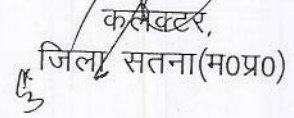 कलेक्टर,
जिला सतना(म०प्र०)